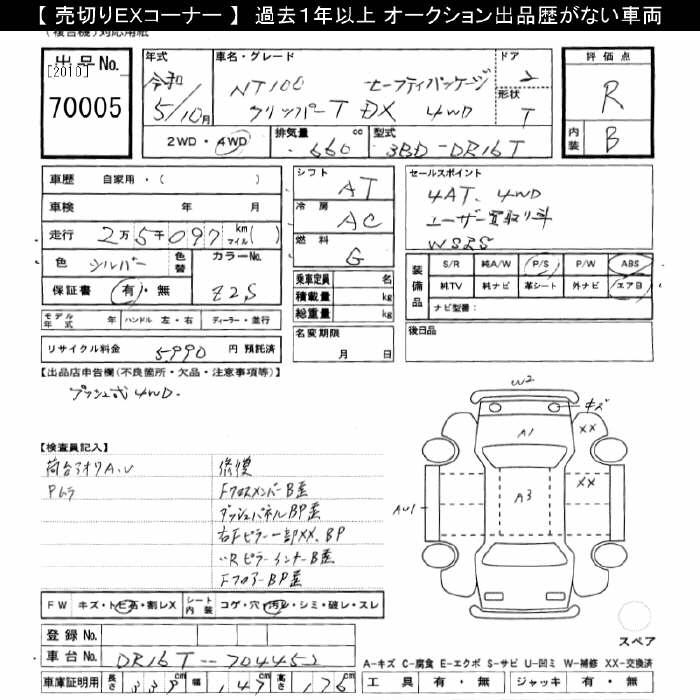 【 売切りEXコーナー 】 過去１年以上 オークション出品歴がない車両
(複合機)対応用紙
出品No.
[2010]
70005
年式
令和
5/10月
車名・グレード
NT100 セーフティパッケージ
クリッパーT DX 4WD
ドア
2
形状
T
評価点
R
内装
B
2WD・4WD
排気量
660
cc
型式
3BD-DR16T
車歴 自家用・( )
車検 年 月
走行 2万5千097 km マイル( )
色 シルバー
色替
カラーNo.
Z2S
保証書 有・無
モデル年式 年
ハンドル 左・右
ディーラー・並行
リサイクル料金 5990 円 預託済
シフト
AT
冷房
AC
燃料
G
乗車定員 名
積載量 kg
総重量 kg
名変期限
月 日
セールスポイント
4AT、4WD
ユーザー買取り車
装備品
S/R 純A/W P/S P/W ABS
純TV 純ナビ 革シート 外ナビ エアB
ナビ型番:
後日品
【出品店申告欄(不良箇所・欠品・注意事項等)】
プッシュ式4WD.
【検査員記入】
荷台アオリA、U
Pムラ
修復
FクロスメンバーB歪
ダッシュパネルBP歪
右Fピラー一部XX、BP
〃RピラーインナーB歪
FフロアーBP歪
W2
キズ
A1
XX
A3
XX
AU1
FW キズ・トビ石・割レX
シート内装 コゲ・穴・汚レ・シミ・破レ・スレ
登録No.
車台No. DR16T-704452
車庫証明用 長さ 339 cm 幅 147 cm 高さ 176 cm
スペア
A-キズ C-腐食 E-エクボ S-サビ U-凹ミ W-補修 XX-交換済
工具 有・無 ジャッキ 有・無